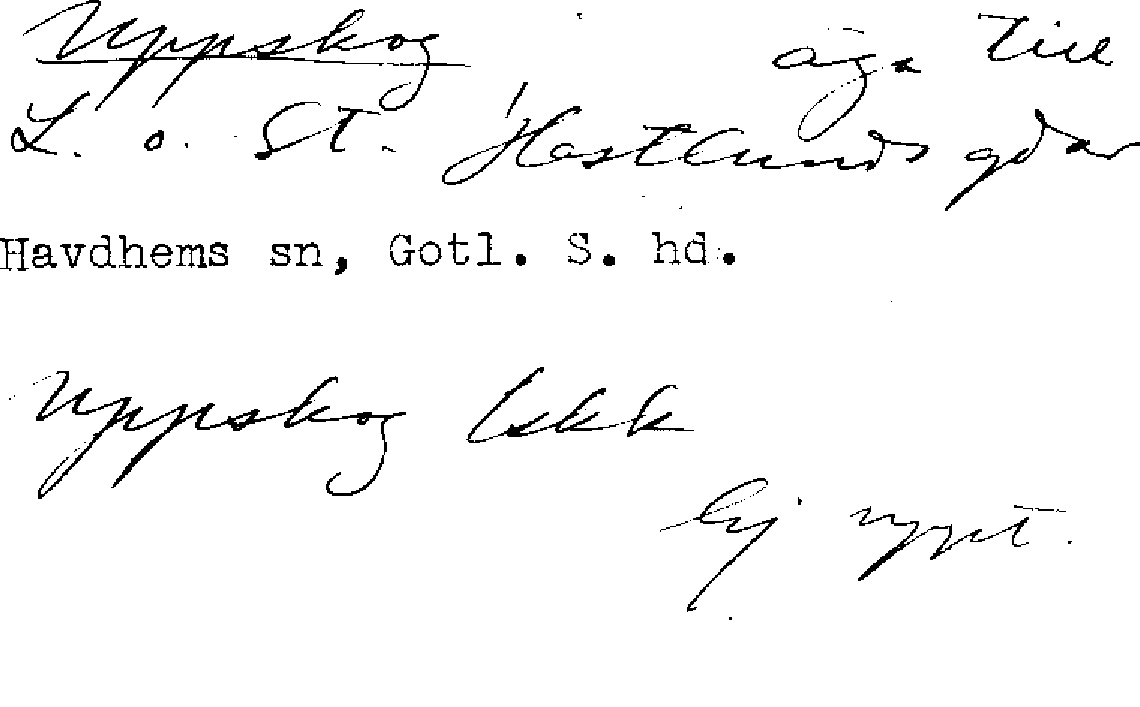 Uppskog äga till
L. o. St. Hastlunds gdar
Havdhems sn, Gotl. S. hd.
Uppskog
Ej uppt.